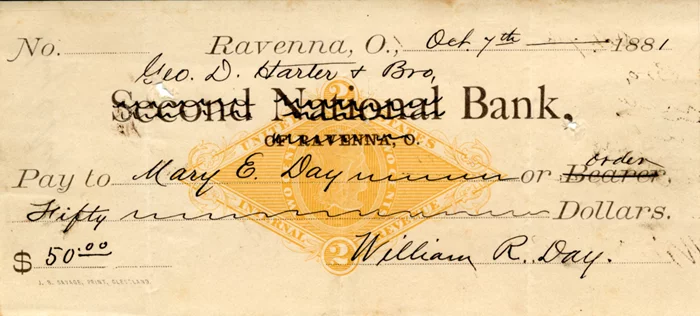 No. Ravenna, O., Oct. 7th 1881
Geo. D. Harter & Bro,
Second National Bank,
OF RAVENNA, O.
order
Pay to Mary E. Day or Bearer.
Fifty Dollars.
$ 50.00 William R. Day.
UNITED STATES
INTERNAL REVENUE
2
2
J. B. SAVAGE, PRINT, CLEVELAND.